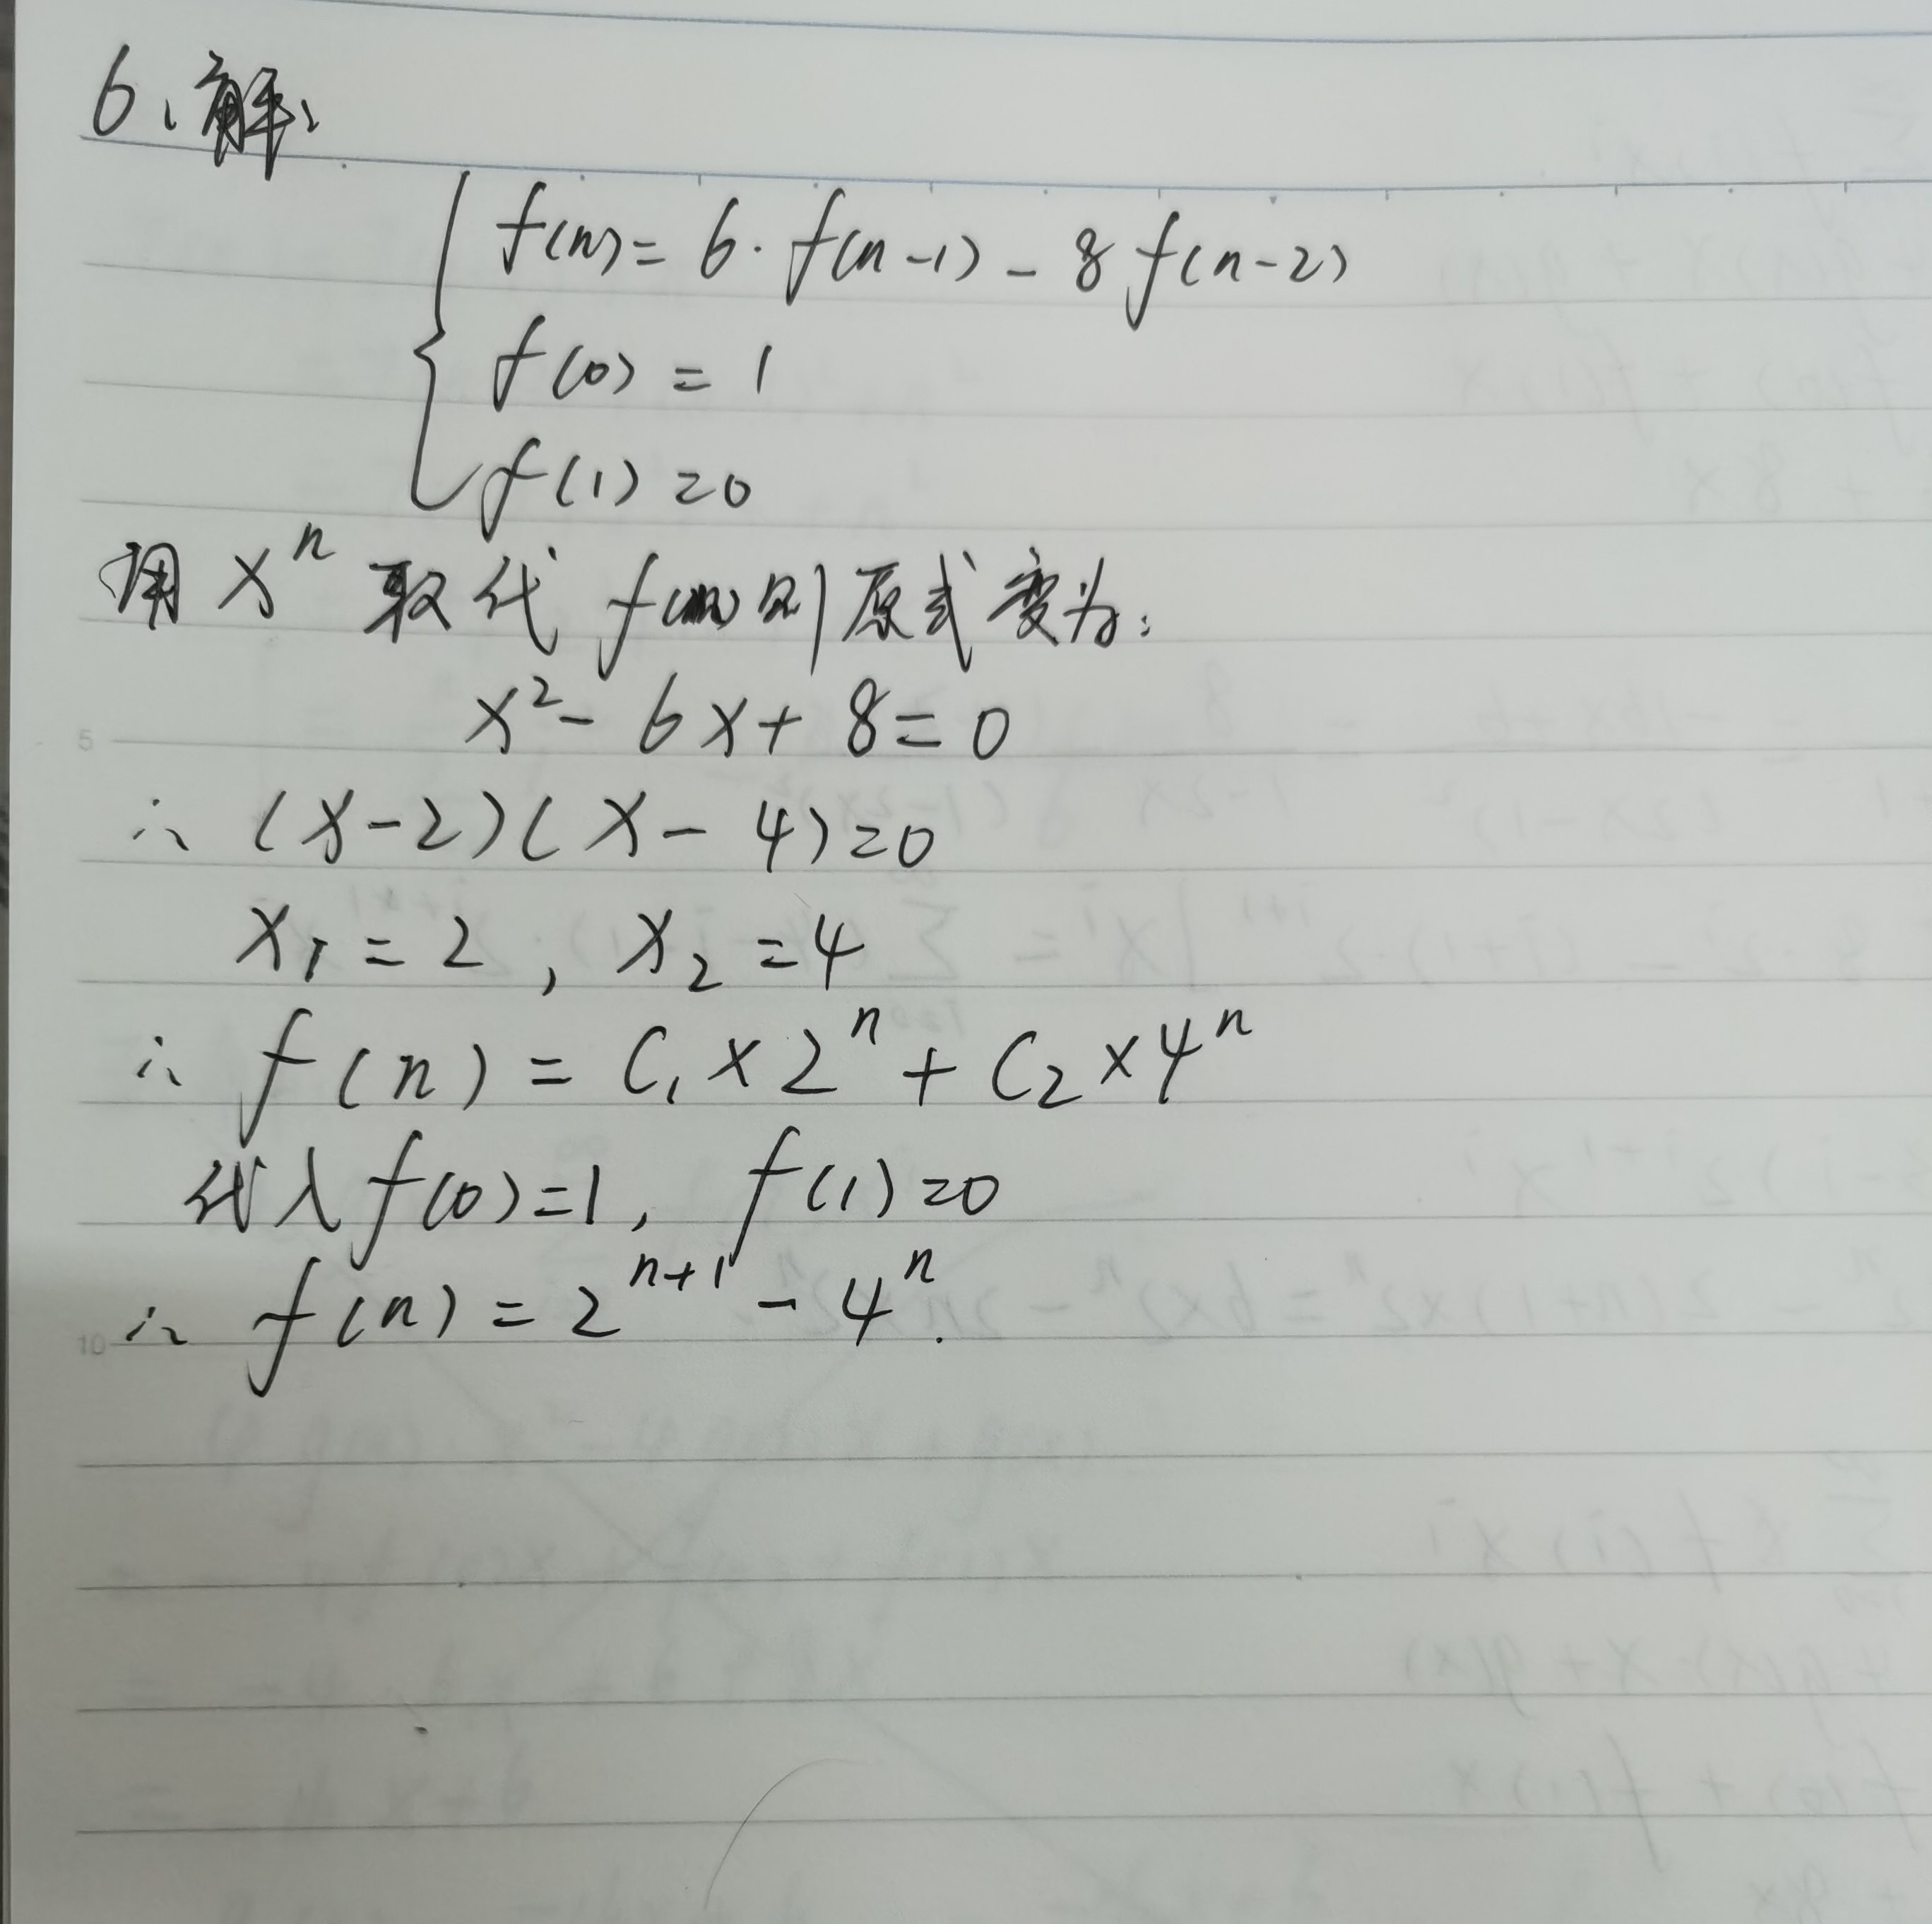 6、解:
f(n) = 6·f(n-1) - 8f(n-2)
f(0) = 1
f(1) = 0
用 xⁿ 取代 f(n) 则原式变为:
x² - 6x + 8 = 0
∴ (x-2)(x-4) = 0
x₁ = 2, x₂ = 4
∴ f(n) = C₁×2ⁿ + C₂×4ⁿ
代入 f(0)=1, f(1)=0
∴ f(n) = 2ⁿ⁺¹ - 4ⁿ.
5
10